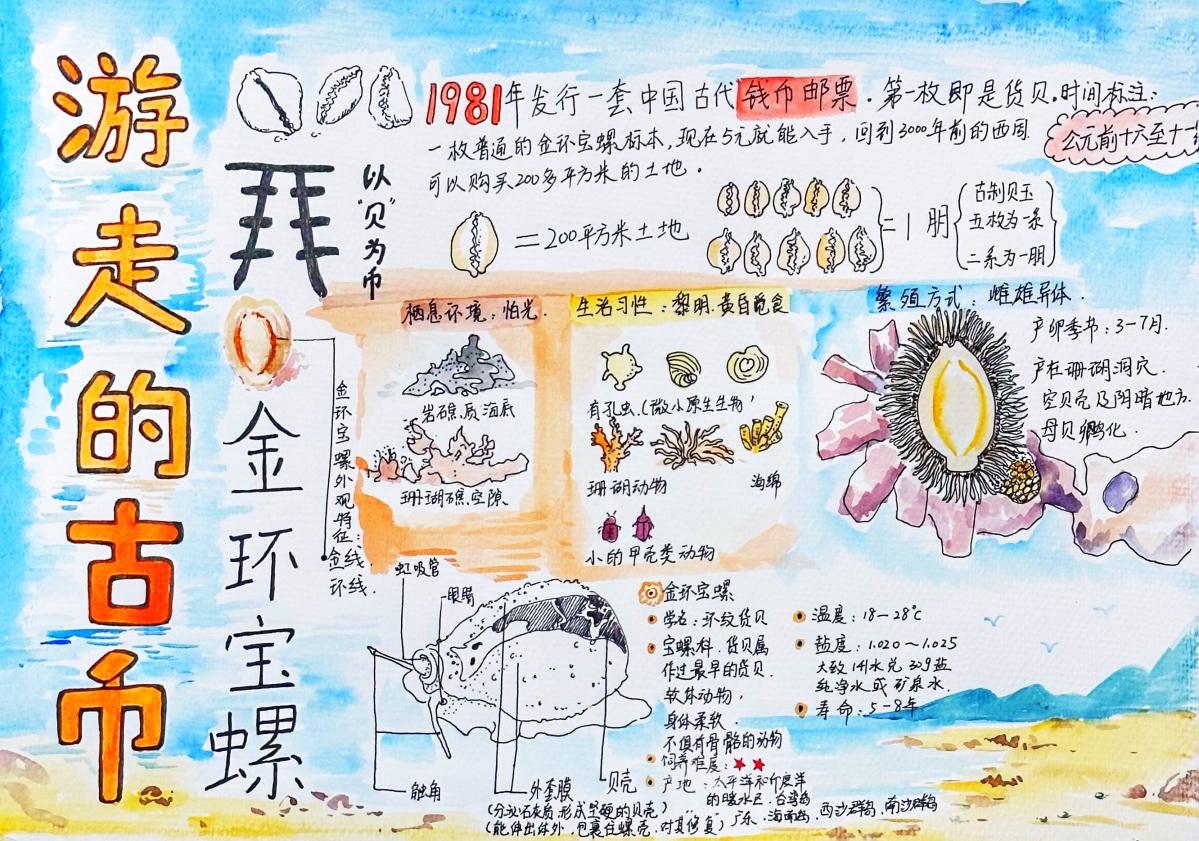 游走的古币
拜
以"贝"为币
金环宝螺
1981年发行一套中国古代钱币邮票.第一枚即是货贝.时间标注:
公元前十六至十一
一枚普通的金环宝螺标本,现在5元就能入手,回到3000年前的西周
可以购买200多平方米的土地.
=200平方米土地
=1朋
古制贝玉
五枚为一系
二系为一朋
金环宝螺外观特征:
金线.
环线.
栖息环境:怕光.
岩礁.质海底
珊瑚礁.空隙
生活习性:黎明.黄昏觅食
有孔虫.(微小原生生物'
珊瑚动物
海绵
小的甲壳类动物
繁殖方式:雌雄异体.
产卵季节:3-7月.
产在珊瑚洞穴.
空贝壳及阴暗地方.
母贝孵化.
虹吸管
眼睛
触角
外套膜
贝壳
(分泌石灰质形成坚硬的贝壳)
(能伸出体外.包裹住螺壳.对其修复)
金环宝螺
学名:环纹货贝
宝螺科.货贝属
作过最早的货贝.
软体动物,
身体柔软.
不俱有骨骼的动物
饲养难度:★★
产地:太平洋和印度洋
的暖水区.台湾岛
广东.海南岛 西沙群岛,南沙群岛
温度:18-28℃
盐度:1.020~1.025
大致1升水兑30g盐
纯净水或矿泉水.
寿命:5-8年